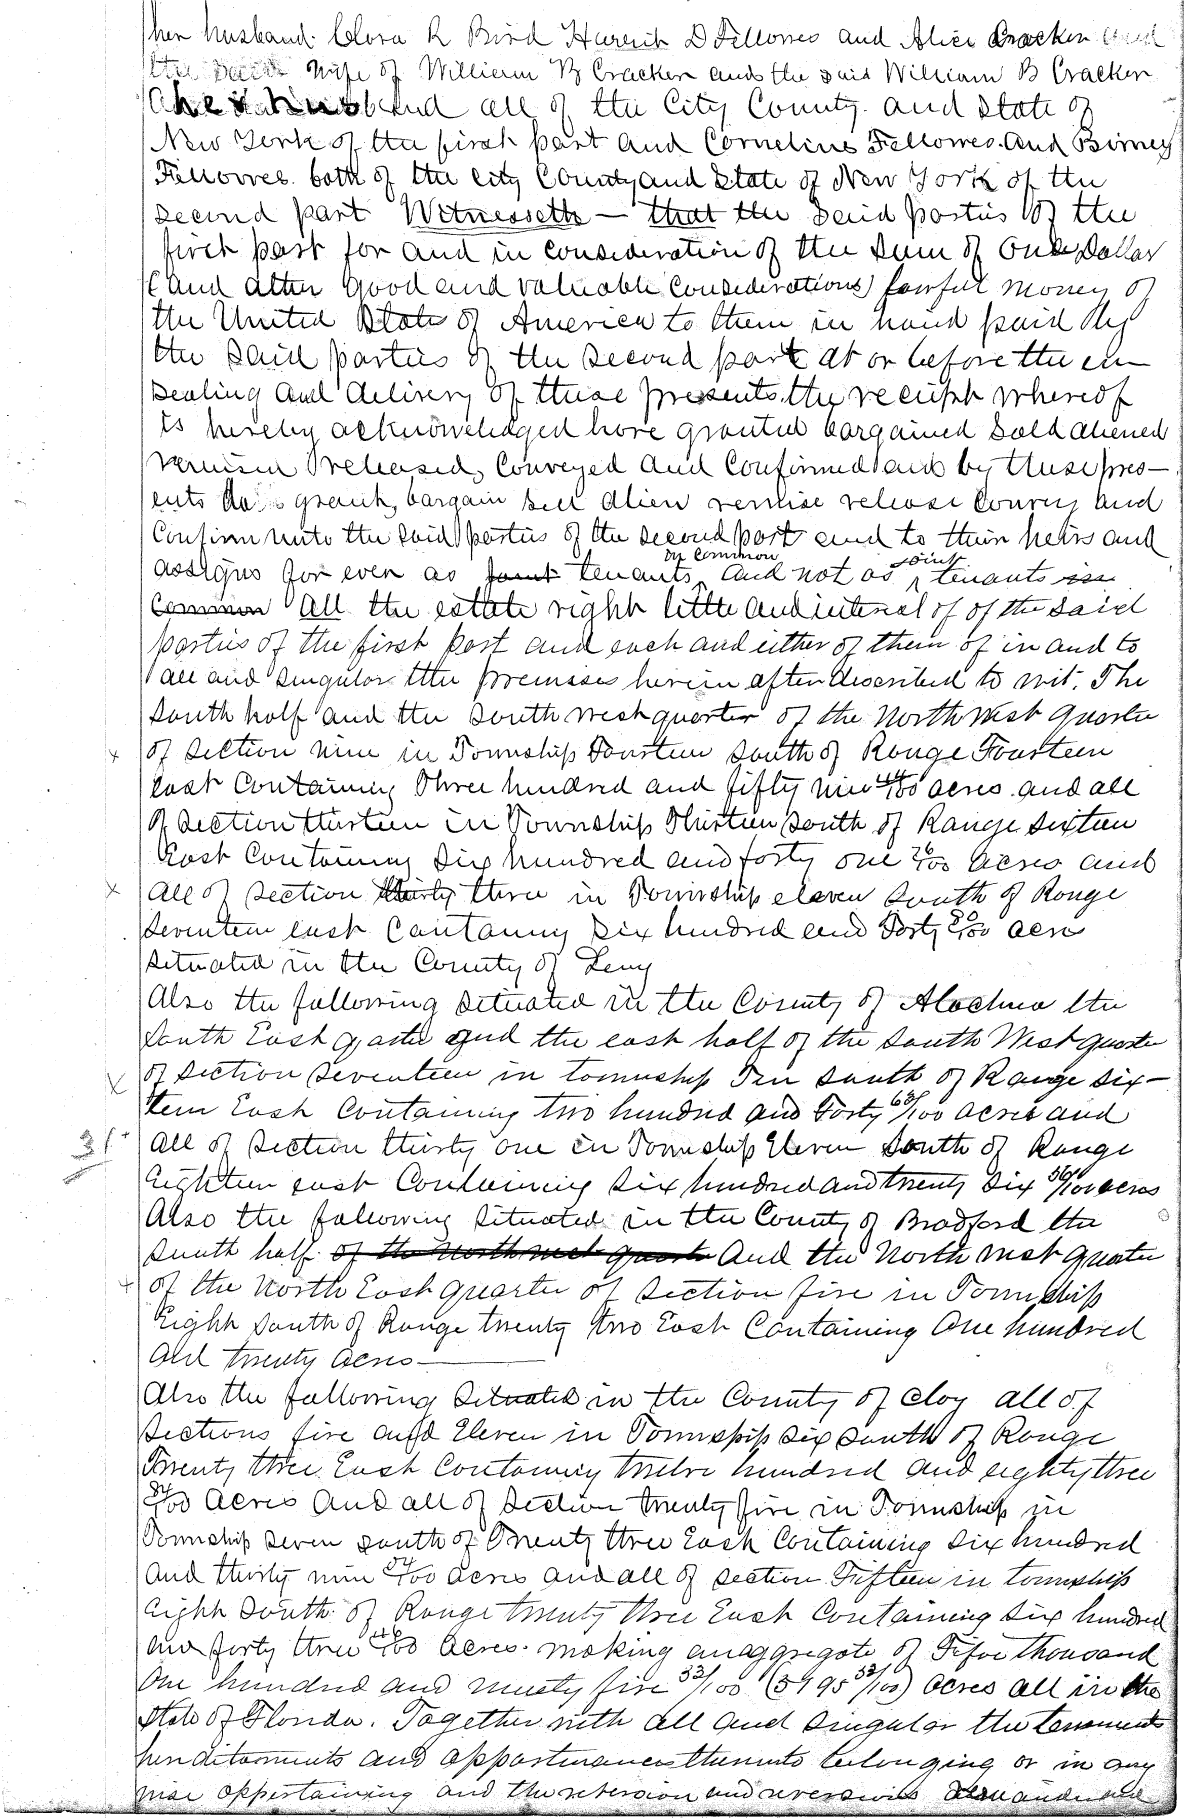 her husband. Clora R Bird Hureich D Fellowes and Alice Cracken and
the said wife of William B Cracken and the said William B Cracken
her husband all of the City County and State of
New York of the first part and Cornelius Fellowes and Birney
Fellowes both of the City County and State of New York of the
second part Witnesseth — that the said parties of the
first part for and in consideration of the sum of One Dollar
(and other good and valuable considerations) lawful money of
the United States of America to them in hand paid by
the said parties of the second part at or before the en—
sealing and delivery of these presents the receipt whereof
is hereby acknowledged have granted bargained sold aliened
remised released, conveyed and confirmed and by these pres—
ents do grant, bargain sell alien remise release convey and
Confirm unto the said parties of the second part and to their heirs and
assigns for ever as joint tenants in common and not as joint tenants in
Common all the estate right tittle and interest of of the said
parties of the first part and each and either of them of in and to
all and singular the premises herein after described to wit. The
South half and the south west quarter of the North West Quarter
x of section nine in Township Fourteen South of Range Fourteen
east Containing Three hundred and fifty nine 44/100 acres and all
of section thirteen in Township Thirteen south of Range sixteen
East Containing Six hundred and forty one /100 acres and
x all of section thirty three in Township eleven South of Range
Seventeen east Containing Six hundred and Forty /100 acres
situated in the County of Levy
Also the following situated in the County of Alachua the
South East quarter and the east half of the South West quarter
x of section seventeen in township Ten South of Range six—
teen East Containing two hundred and Forty 63/100 acres and
31 all of section thirty one in Township Eleven South of Range
Eighteen east Containing six hundred and twenty six 36/100 acres
Also the following situated in the County of Bradford the
south half of the North west quarter And the North west quarter
of the North East quarter of section five in Township
Eight South of Range twenty two East Containing One hundred
and twenty acres—
Also the following situated in the County of Clay all of
sections five and Eleven in Township six south of Range
Twenty three East Containing twelve hundred and eighty three
/100 acres and all of section twenty five in Township in
Township seven south of Twenty three East Containing Six hundred
and thirty nine /100 acres and all of section Fifteen in township
Eight South of Range twenty three East Containing six hundred
and forty three /100 acres. making an aggregate of Five thousand
One hundred and ninety five 33/100 (5195 33/100) acres all in the
State of Florida. Together with all and singular the tenements
hereditaments and appurtenances thereunto belonging or in any
wise appertaining and the reversion and reversions remainder and